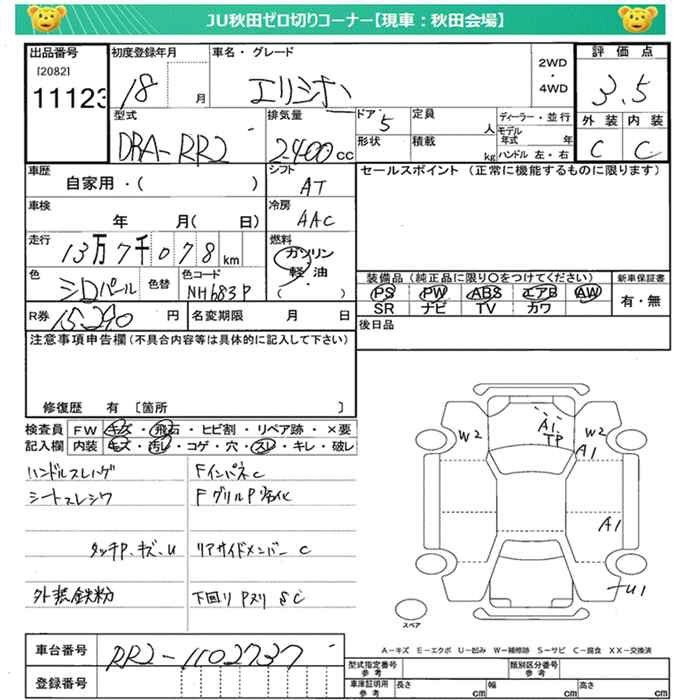 JU秋田ゼロ切りコーナー【現車：秋田会場】
出品番号 初度登録年月 車名・グレード 2WD ・ 4WD 評価点
[2082]
11123 18 月 エリシオン 3.5
型式 排気量 ドア 5 定員 人 ディーラー・並行 モデル年式 年 外装 内装
DBA-RR2 2400 cc 形状 積載 kg ハンドル 左・右 C C
車歴 シフト セールスポイント (正常に機能するものに限ります)
自家用・( ) AT
車検 冷房
年 月( 日) AAC
走行 燃料
13万7千078 km ガソリン
軽・油
( )
色 シロパール 色替 色コード NH683P 装備品(純正品に限り○をつけてください) 新車保証書
PS PW ABS エアB AW 有・無
SR ナビ TV カワ
R券 15,290 円 名変期限 月 日 後日品
注意事項申告欄(不具合内容等は具体的に記入して下さい)
修復歴 有 〔箇所 〕
検査員 FW キズ・飛石・ヒビ割・リペア跡・×要
記入欄 内装 キズ・汚レ・コゲ・穴・スレ・キレ・破レ
ハンドルスレハゲ FインパネC
シートスレシワ FグリルP劣化
タッチP.キズ.U リアサイドメンバーC
外装鉄粉 下回りPヌリ SC
W2 A1 TP W2
A1
A1
U1
スペア
A－キズ E－エクボ U－凹み W－補修跡 S－サビ C－腐食 XX－交換済
車台番号 RR2-1102737
登録番号 型式指定番号 参考 類別区分番号 参考
車庫証明用 参考 長さ cm 幅 cm 高さ cm